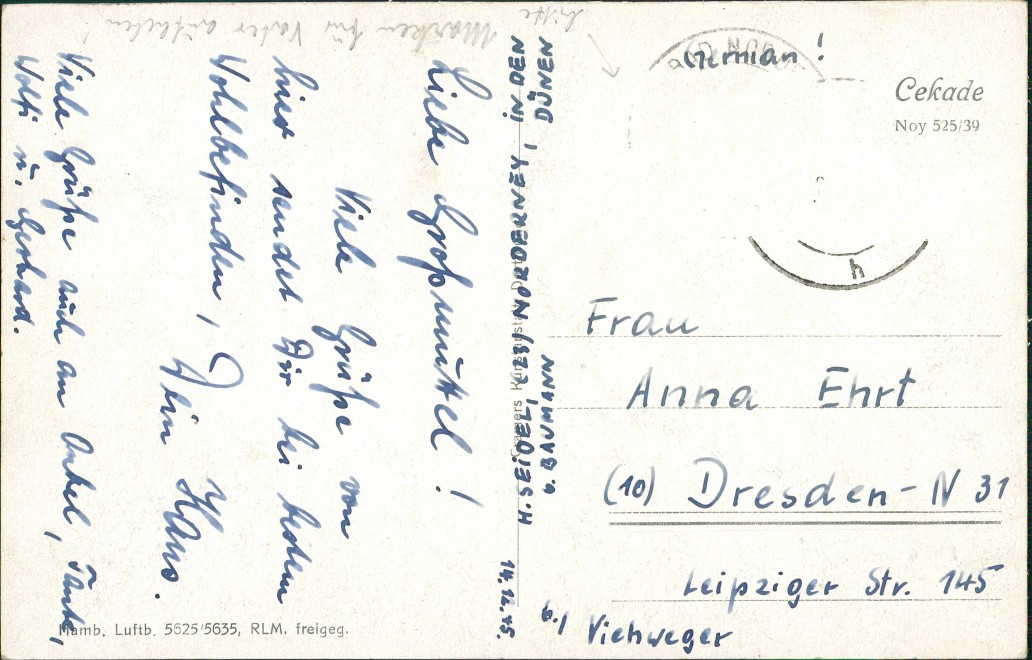 Liebe Großmuttel!
Viele Grüße von
hier sendet Dir bei bestem
Wohlbefinden,
Dein Hans.
Viele Grüße auch an Onkel, Tante,
Wolfi u. Gerhard.
bitte
Marken für Vater aufheben!
H. SEIDEL, (23) NORDERNEY, IN DEN
DÜNEN
b. BAUMANN
14. 12. 45.
German!
Cekade
Noy 525/39
h
Frau
Anna Ehrt
(10) Dresden-N 31
Leipziger Str. 145
b./ Viehweger
Hamb. Luftb. 5625/5635, RLM. freigeg.